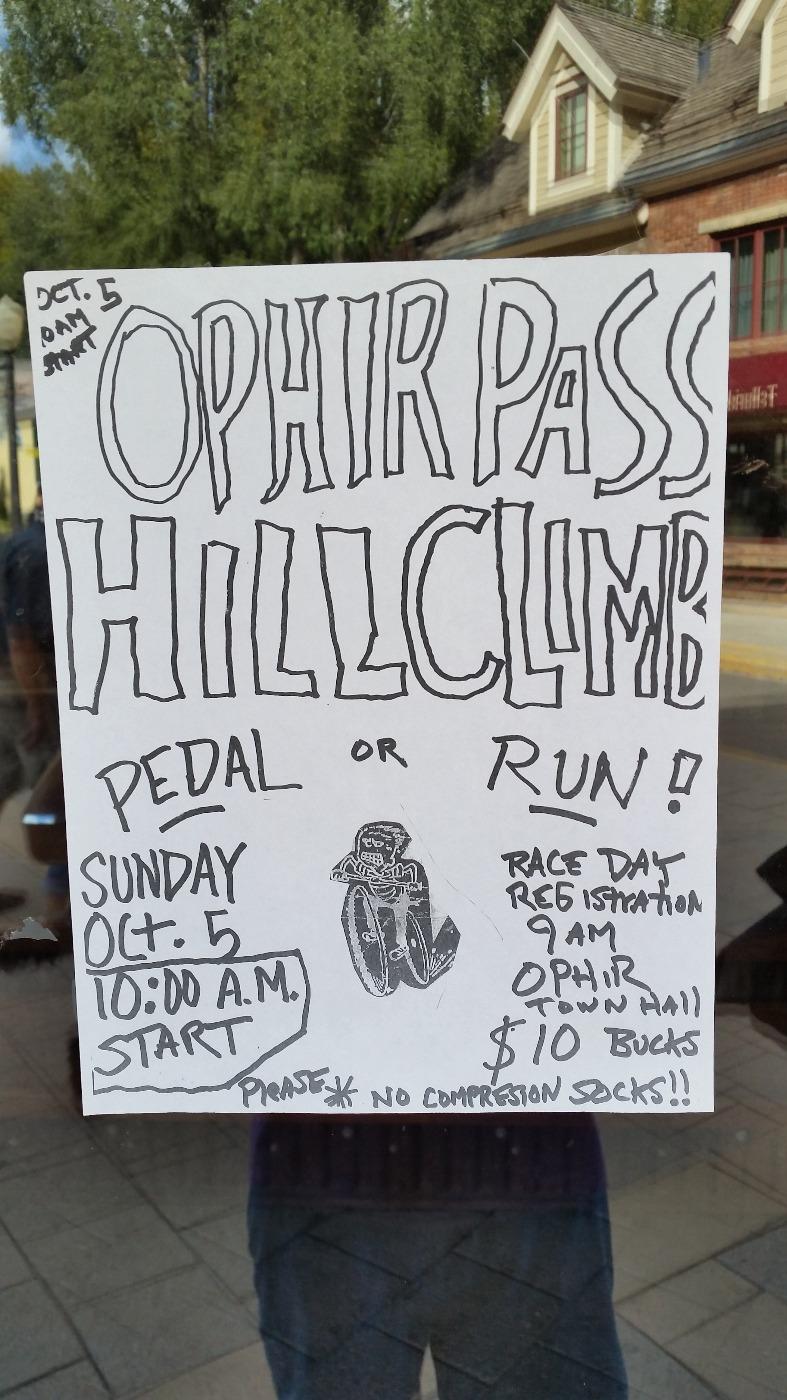 OCT. 5
10 AM
START
OPHIR PASS
HILLCLIMB
PEDAL OR RUN!
SUNDAY
OCT. 5
10:00 A.M.
START
RACE DAY
REGISTRATION
9 AM
OPHIR
TOWN HALL
$10 BUCKS
PLEASE * NO COMPRESION SOCKS!!